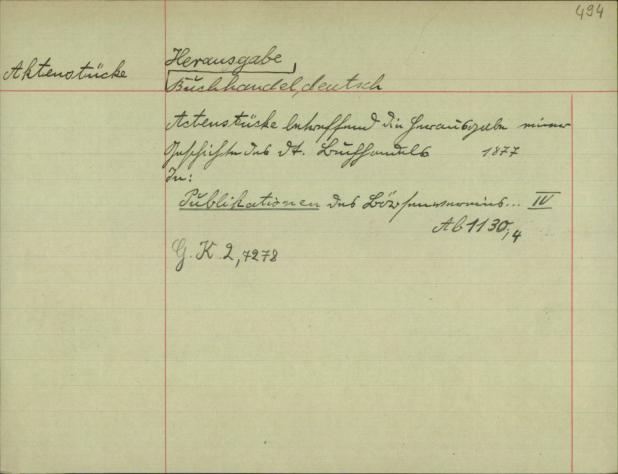 494
Aktenstücke
Herausgabe
Buchhandel, deutsch
Actenstücke betreffend die Herausgabe einer
Geschichte des dt. Buchhandels 1877
In:
Publikationen des Börsenvereins... IV
Ab 1130,4
G.K 2,7278